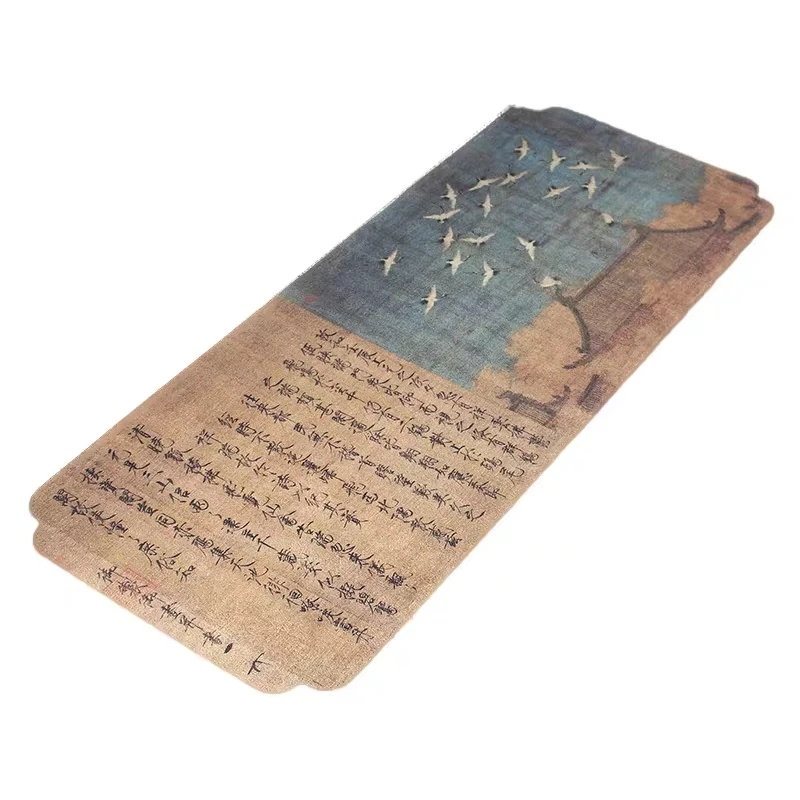 政和壬辰上元之次夕忽有祥雲拂鬱
低映端門眾皆仰而視之倏有群鶴
飛鳴於空中仍有二鶴對止於鴟尾
之端頗甚閑適餘皆翱翔如應奏節
往來都民無不稽首瞻望歎異久之
經時不散迤邐歸飛西北隅散感茲
祥瑞故作詩以紀其實
清曉觚稜拂彩霓仙禽告瑞忽來儀飄
飄元是三山侶兩兩還呈千歲姿似擬碧鸞
棲寶閣豈同赤鴈集天池徘徊嘹唳當丹
闕故使憧憧庶俗知
御製御畫并書